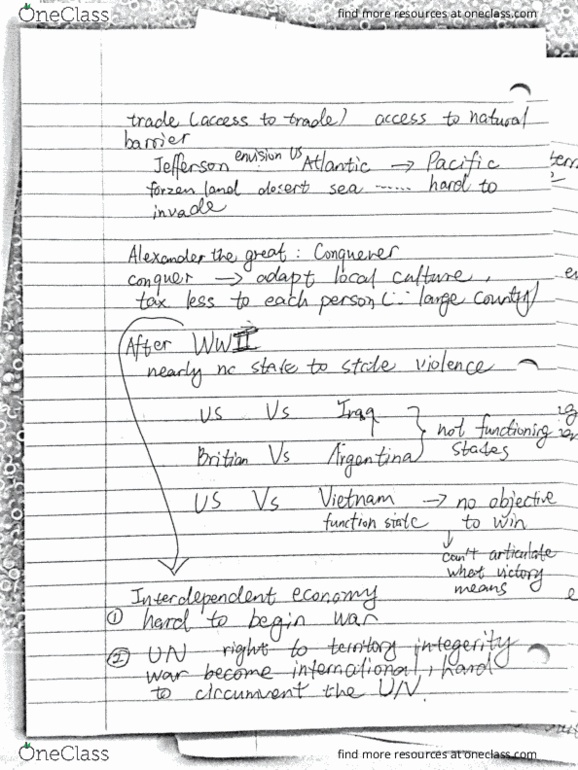 OneClass
find more resources at oneclass.com
trade (access to trade) access to natural
barrier
Jefferson envision US Atlantic → Pacific
forzen land desert sea ...... hard to
invade
Alexander the great : Conquerer
conquer → adapt local culture,
tax less to each person (∵ large county)
After WWII
nearly no state to state violence
US Vs Iraq
Britian Vs Argentina
not functioning
states
US Vs Vietnam → no objective
function state to win
↓
can't articulate
what victory
means
Interdependent economy
① hard to begin war
② UN right to territory integerity
war become international, hard
to circumvent the UN.
OneClass
find more resources at oneclass.com